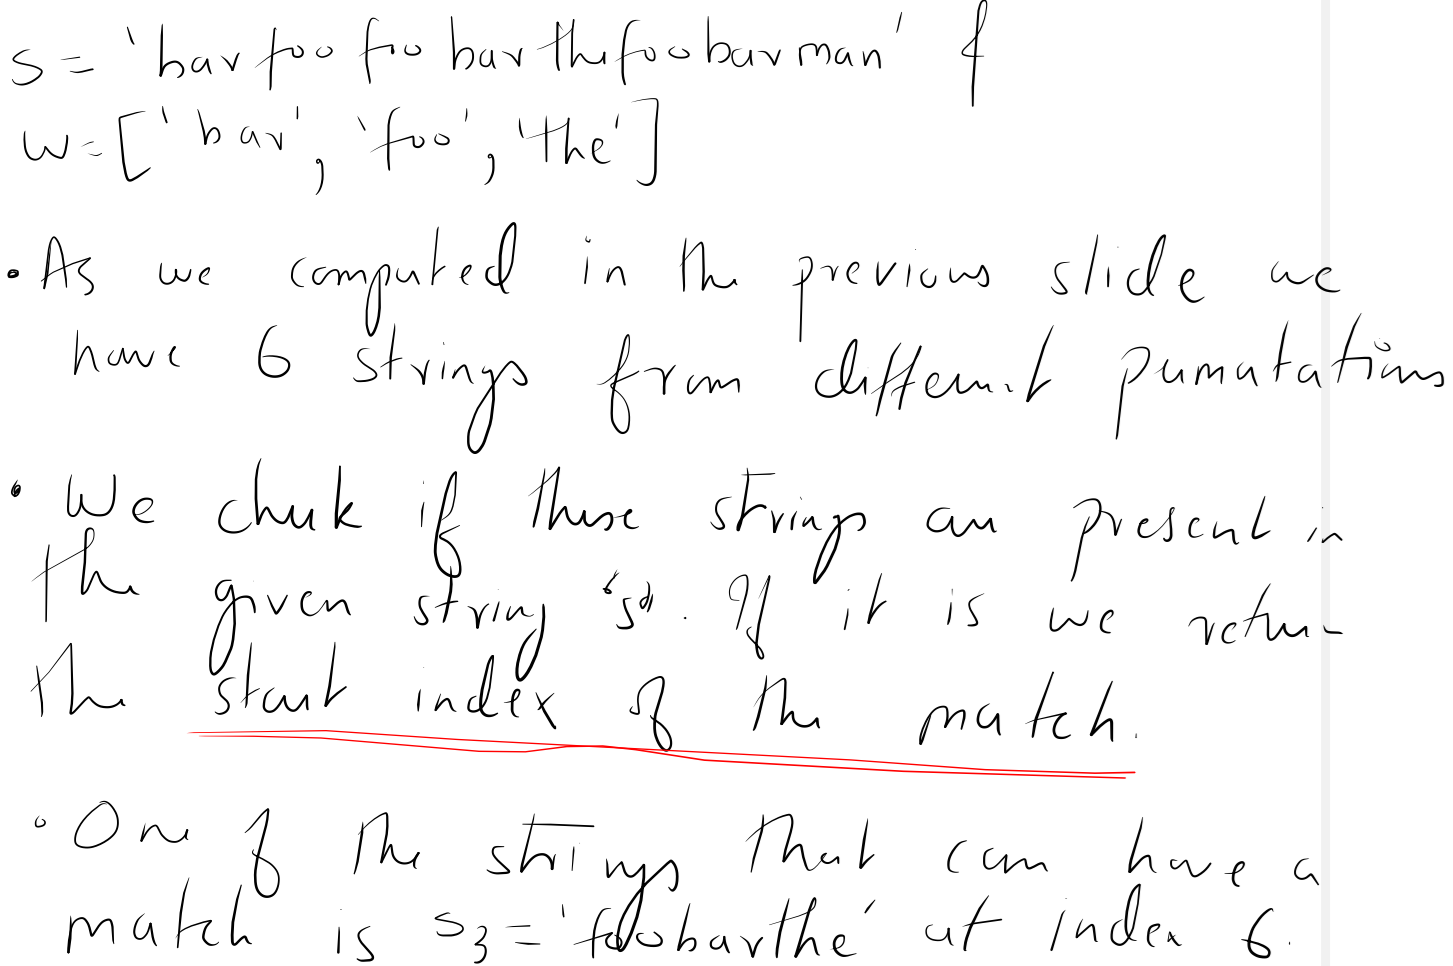 s = 'barfoofoobarthefoobarman' &
w = ['bar', 'foo', 'the']
• As we computed in the previous slide we
have 6 strings from different pumutations
• We check if these strings are present in
the given string "s". If it is we return
the start index of the match.
• One of the strings that can have a
match is s3 = 'foobarthe' at index 6.